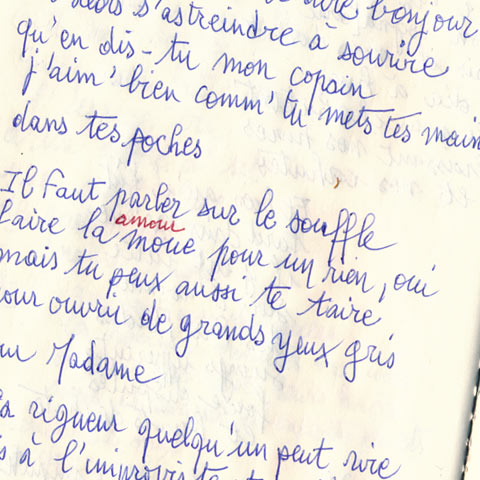 alors s'astreindre à sourire bonjour
qu'en dis-tu mon copain
j'aim' bien comm' tu mets tes main
dans tes poches
Il faut parler sur le souffle
faire la moue pour un rien, oui
amour
mais tu peux aussi te taire
pour ouvrir de grands yeux gris
ou Madame
la rigueur quelqu'un peut rire
à l'improviste